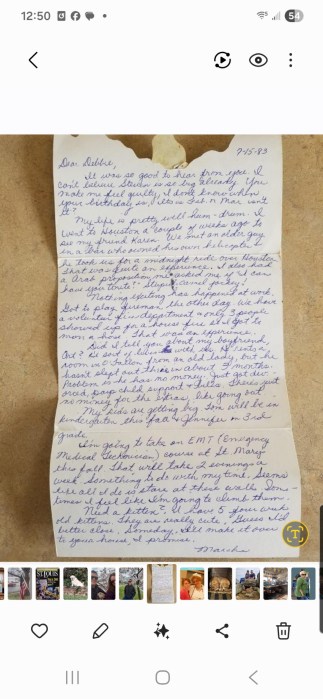 12:50
54
7-15-83
Dear Debbie,
It was so good to hear from you. I
can't believe Steven is so big already. You
make me feel guilty, I don't know when
your birthday is, its in Feb. or Mar. isn't
it?
My life is pretty well hum-drum. I
went to Houston a couple of weeks ago to
see my friend Karen. We met an older guy
in a bar who owned his own helicopter &
he took us for a midnight ride over Houston
That was quite an experience. I also had
a Arab proposition me asked me if "I can
have you tonite?" Stupid camel jockey!
Nothing exciting has happened at work.
Got to play fireman the other day. We have
a volunteer fire department & only 3 people
showed up for a house fire so I got to
man a hose. That was an experience.
Did I tell you about my boyfriend,
room in from an old lady, but he
hasn't slept out there in about 9 months.
Problem is he has no money. Just got div-
orced, pays child support & bills. There's just
no money for the extras, like going out
My kids are getting big Tom will be in
kindergarten this fall & Jennifer in 3rd
grade.
I'm going to take an EMT (Emergency
Medical Technician) course at St. Mary
this fall. That will take 2 evenings a
week. Something to do with my time. Seems
like all I do is stare at these walls. Some-
times I feel like I'm going to climb them.
Need a kitten? I have 5 four week
old kittens. They are really cute. Guess I'd
better close. Someday, I'll make it over
to your house, I promise.
Marsha
T